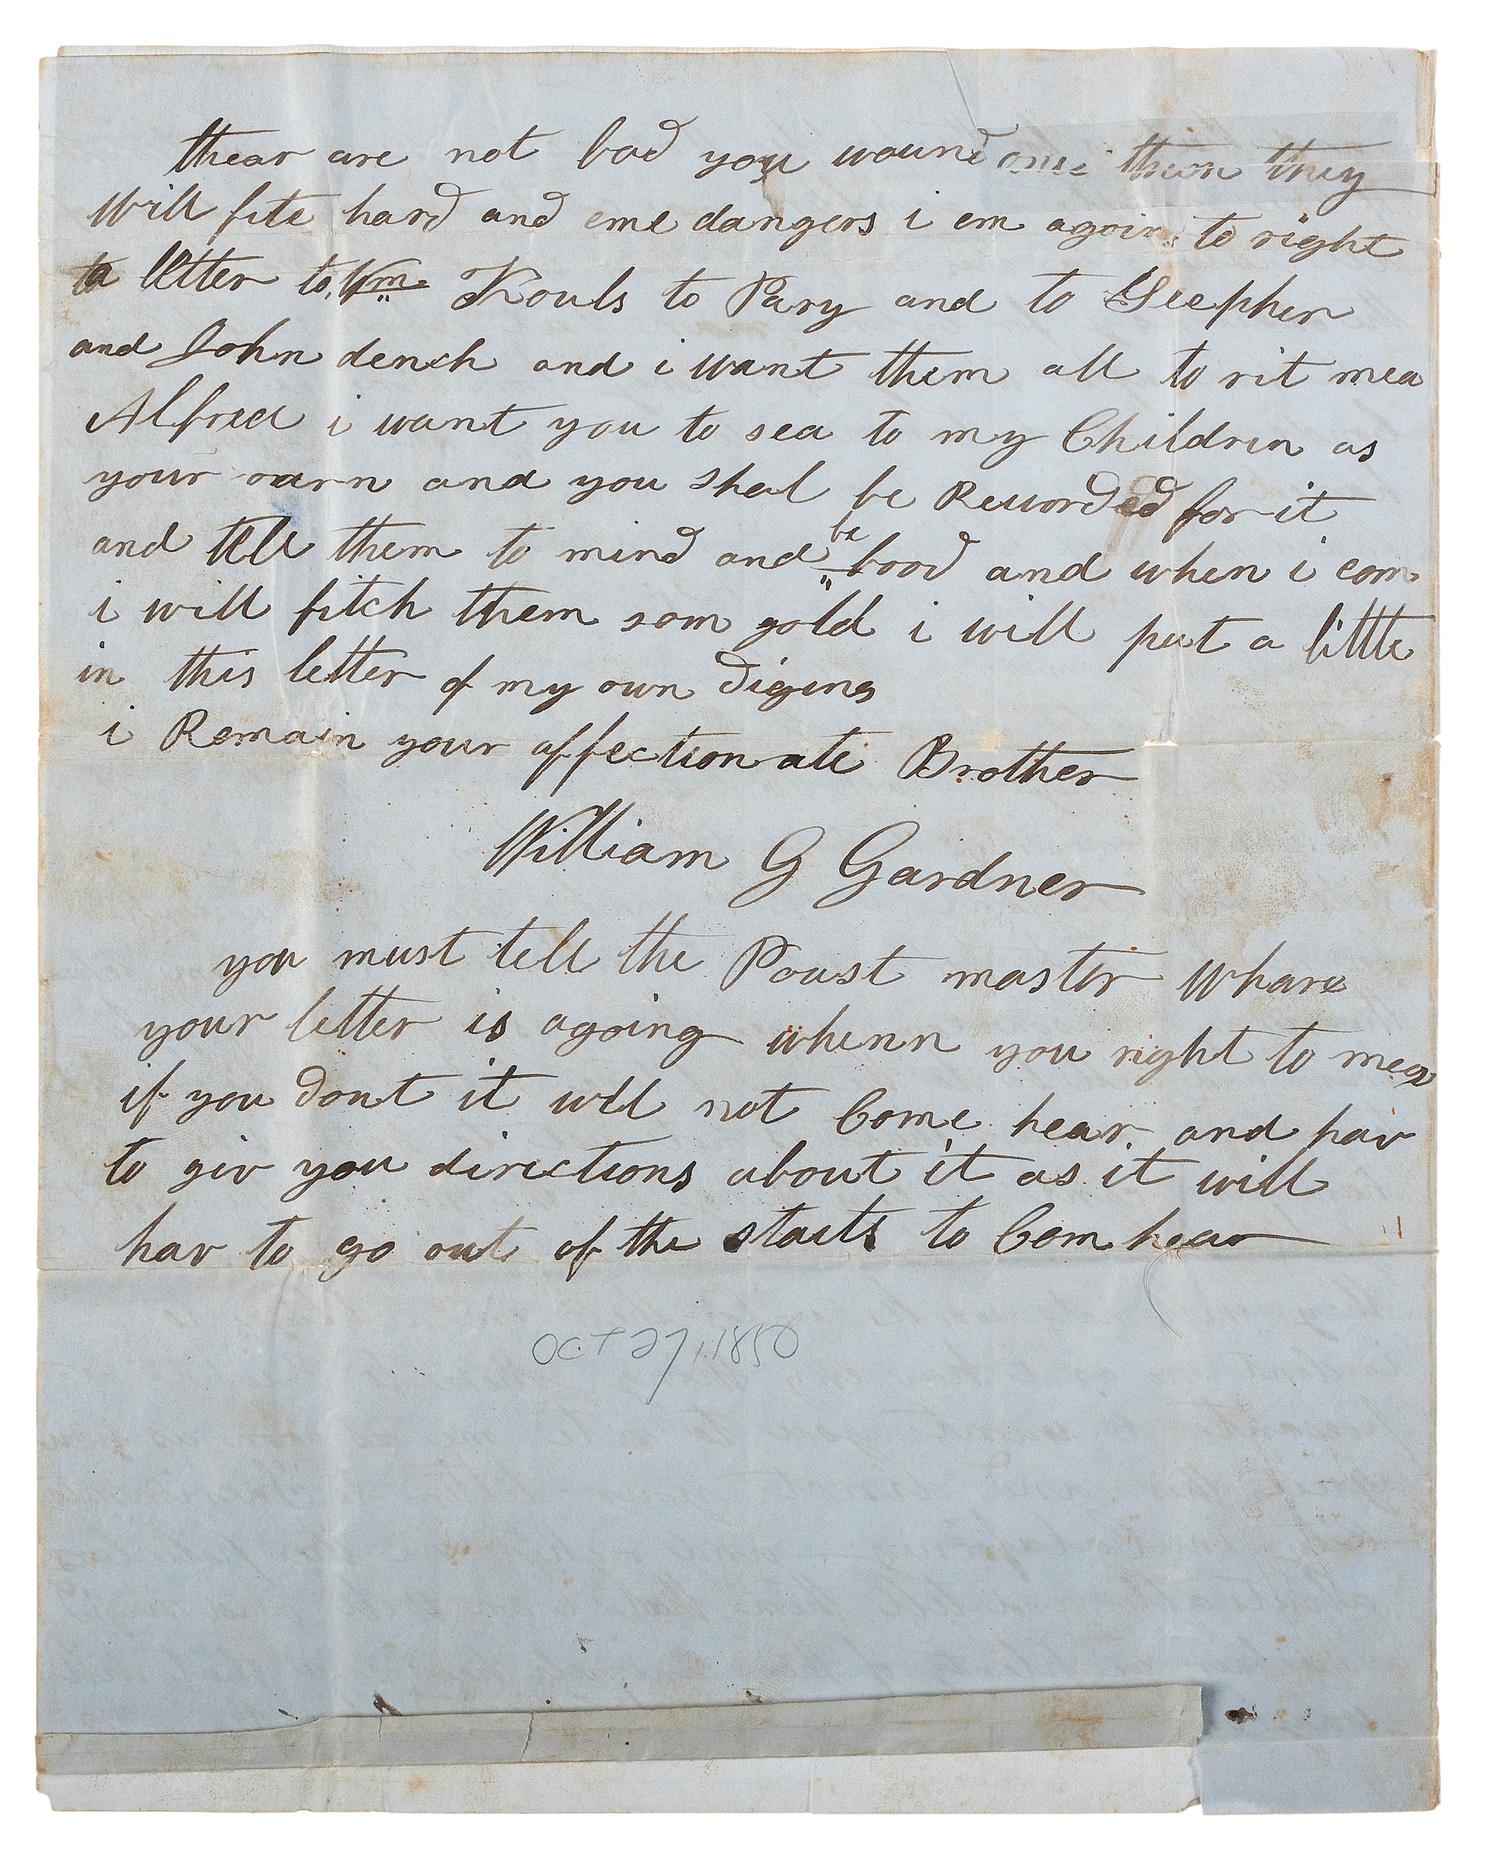 thear are not bad you wound one thean they
Will fite hard and eme dangers i em agoin to right
a letter to Wm Kouls to Pary and to Steephen
and John dench and i want them all to rit mea
Alfred i want you to sea to my Children as
your oarn and you shal be Rewarded for it
and tell them to mind and be good and when i com
i will fitch them som gold i will put a little
in this letter of my own diging
i Remain your affectionate Brother
William G Gardner
you must tell the Poust master Whare
your letter is agoing whenn you right to mea
if you dont it will not Come hear and hav
to giv you directions about it as it will
hav to go out of the staits to Com hear
OCT 27, 1850